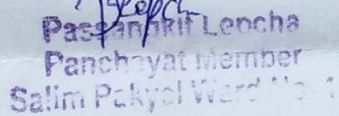 Passangkit Lepcha
Panchayat Member
Salim Pakyel Ward No. 1